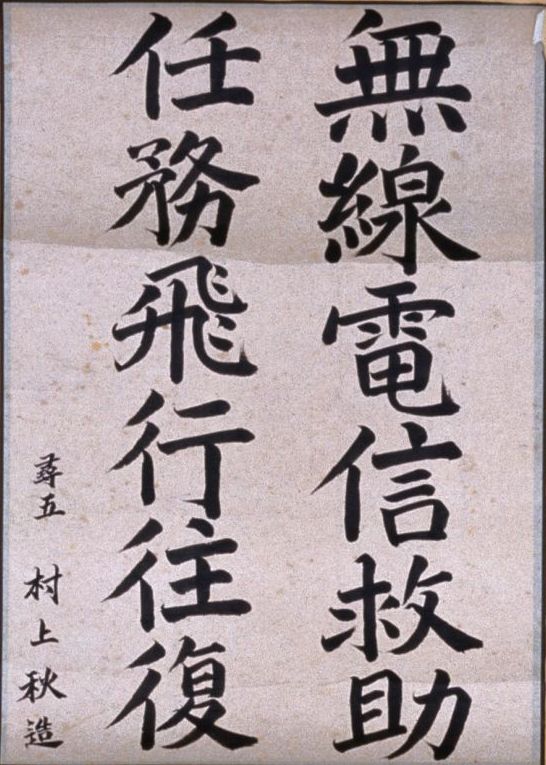 無線電信救助
任務飛行往復
尋五 村上秋造